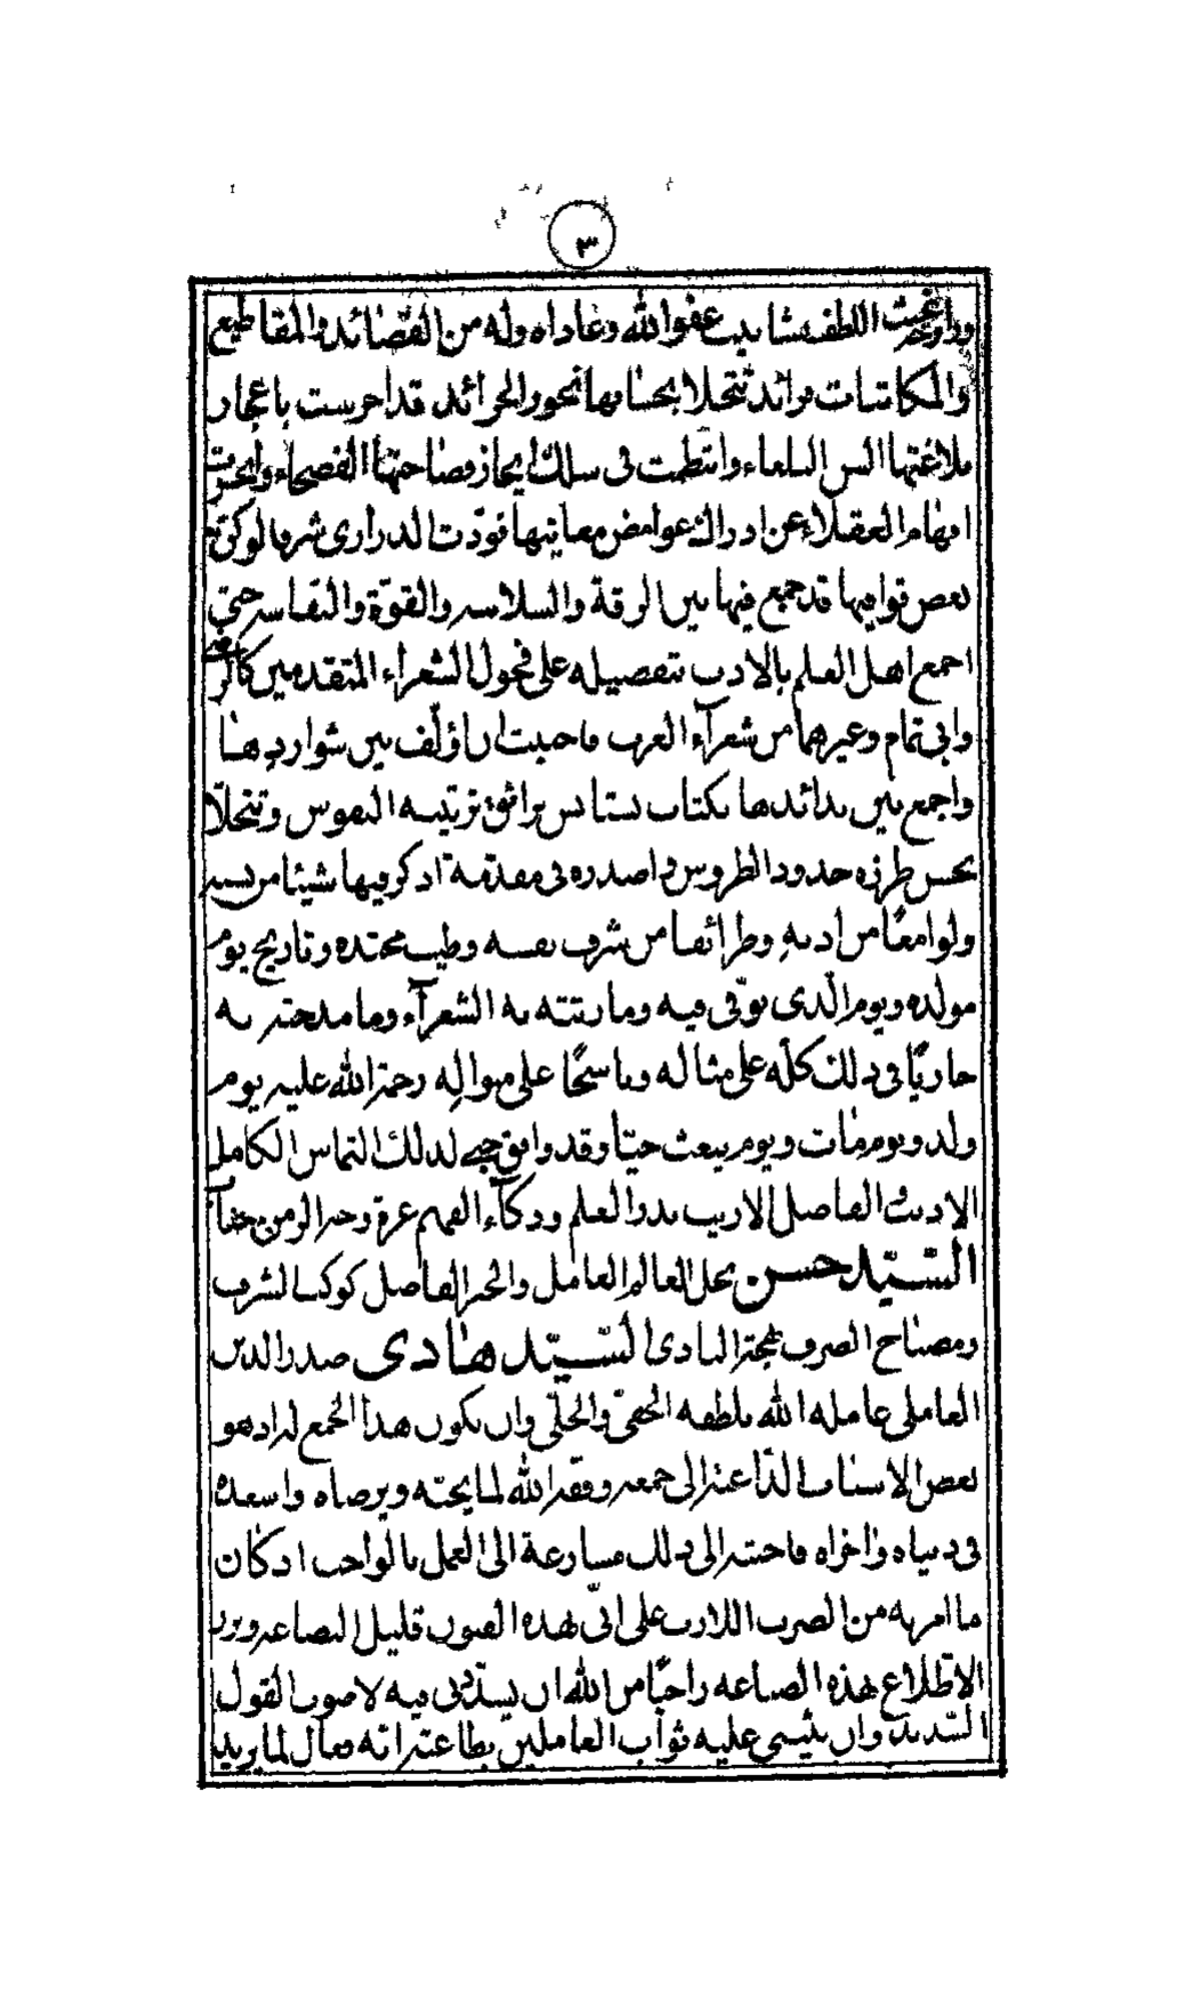 ٣
اللطف شابيب عفو الله وغاداه وله من القصائد والمقاطيع
والمكاتبات فرائد تتحلا بحسانها نحور الخرائد قد اخرست باعجاز
بلاغتها السن البلغاء وانتظمت فى سلك ايجاز فصاحتها الفصحاء
افهام العقلاء عن ادراك غوامض معانيها فودت الدرارى شرفا لو كن
بعض قوافيها قد جمع فيها بين الرقة والسلاسه والقوة والنفاسه حتى
اجمع اهل العلم بالادب بتفصيله على فحول الشعراء المتقدمين
وابى تمام وغيرهما من شعرآء العرب فاحببت ان اؤلف بين شواردها
واجمع بين بدائدها بكتاب تستانس برائق ترتيبه النفوس وتتحلا
بحسن طرزه خدود الطروس واصدره فى مقدمة اذكر فيها شيئا من
ولوامعا من ادبه وطرائفا من شرف نفسه وطيب محتده وتاريخ يوم
مولده ويوم الذى توفى فيه وما رثته به الشعرآء وما مدحته به
جاريا فى ذلك كله على مثاله وناسجا على منواله رحمة الله عليه يوم
ولد ويوم مات ويوم يبعث حيا وقد وافق لذلك التماس الكامل
الاديب الفاضل الاريب بدر العلم وذكآء الفهم غرة وجه الزمن
السيد حسن نجل العالم العامل والحبر الفاضل كوكب الشرف
ومصباح الصرف بهجة النادى السيد هادى صدر الدين
العاملى عامله الله بلطفه الخفى والجلى وان يكون هذا الجمع له اذ هو
بعض الاسباب الداعية الى جمعه وفقه الله لما يحبه ويرضاه واسعده
فى دنياه واخراه فاجبته الى ذلك مسارعة الى العمل بالواجب اذ كان
ما امر به من الضرب اللازب على انى بهذه الفنون قليل البضاعه
الاطلاع بهذه الصناعه راجيا من الله ان يسددنى فيه لاصوب القول
السديد وان يثيبنى عليه ثواب العاملين بطاعته انه فعال لما يريد